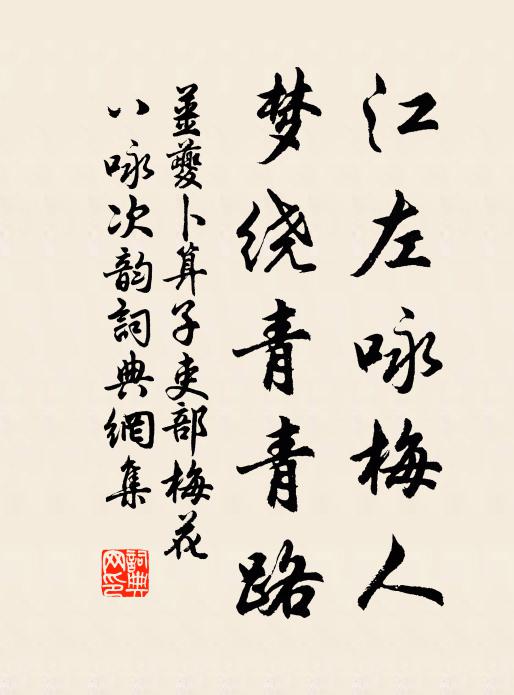 江左咏梅人
梦绕青青路
姜夔卜算子吏部梅花
八咏次韵詞典網集
詞典
网印